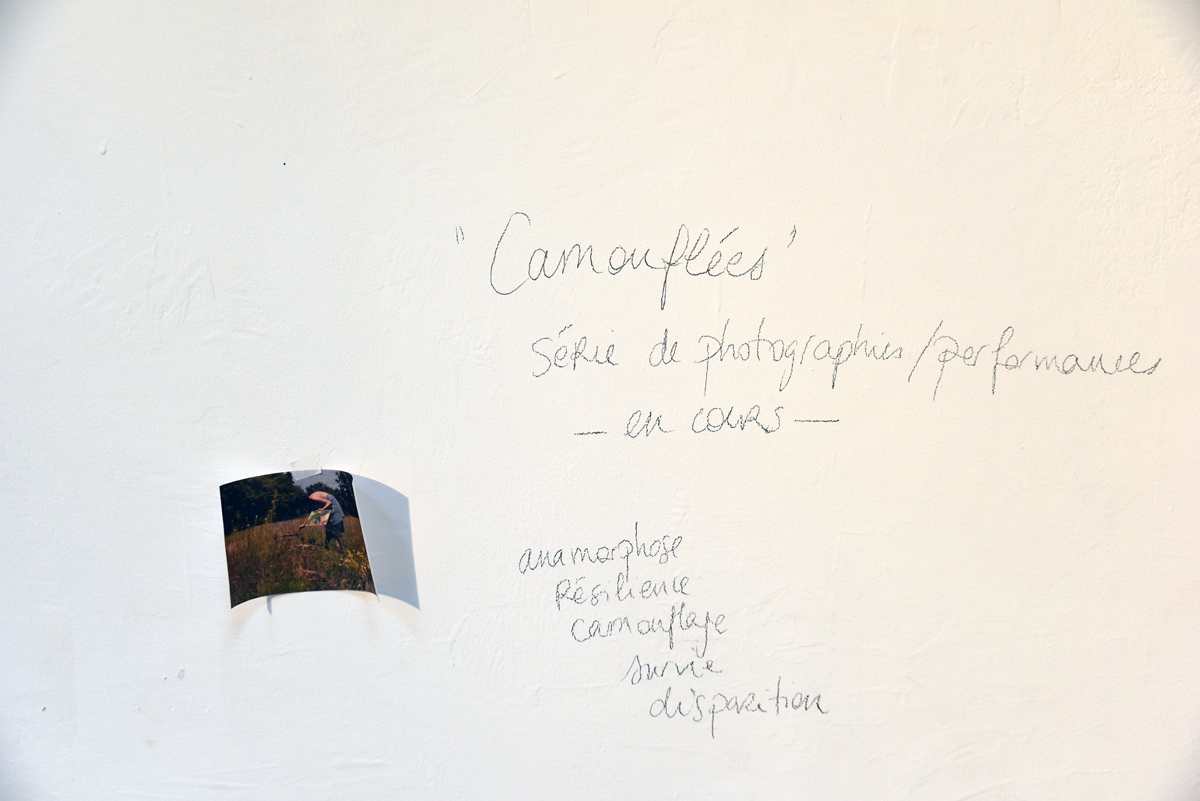 "Camouflées"
Série de photographies/performances
— en cours —
anamorphose
Résilience
camouflage
survie
disparition